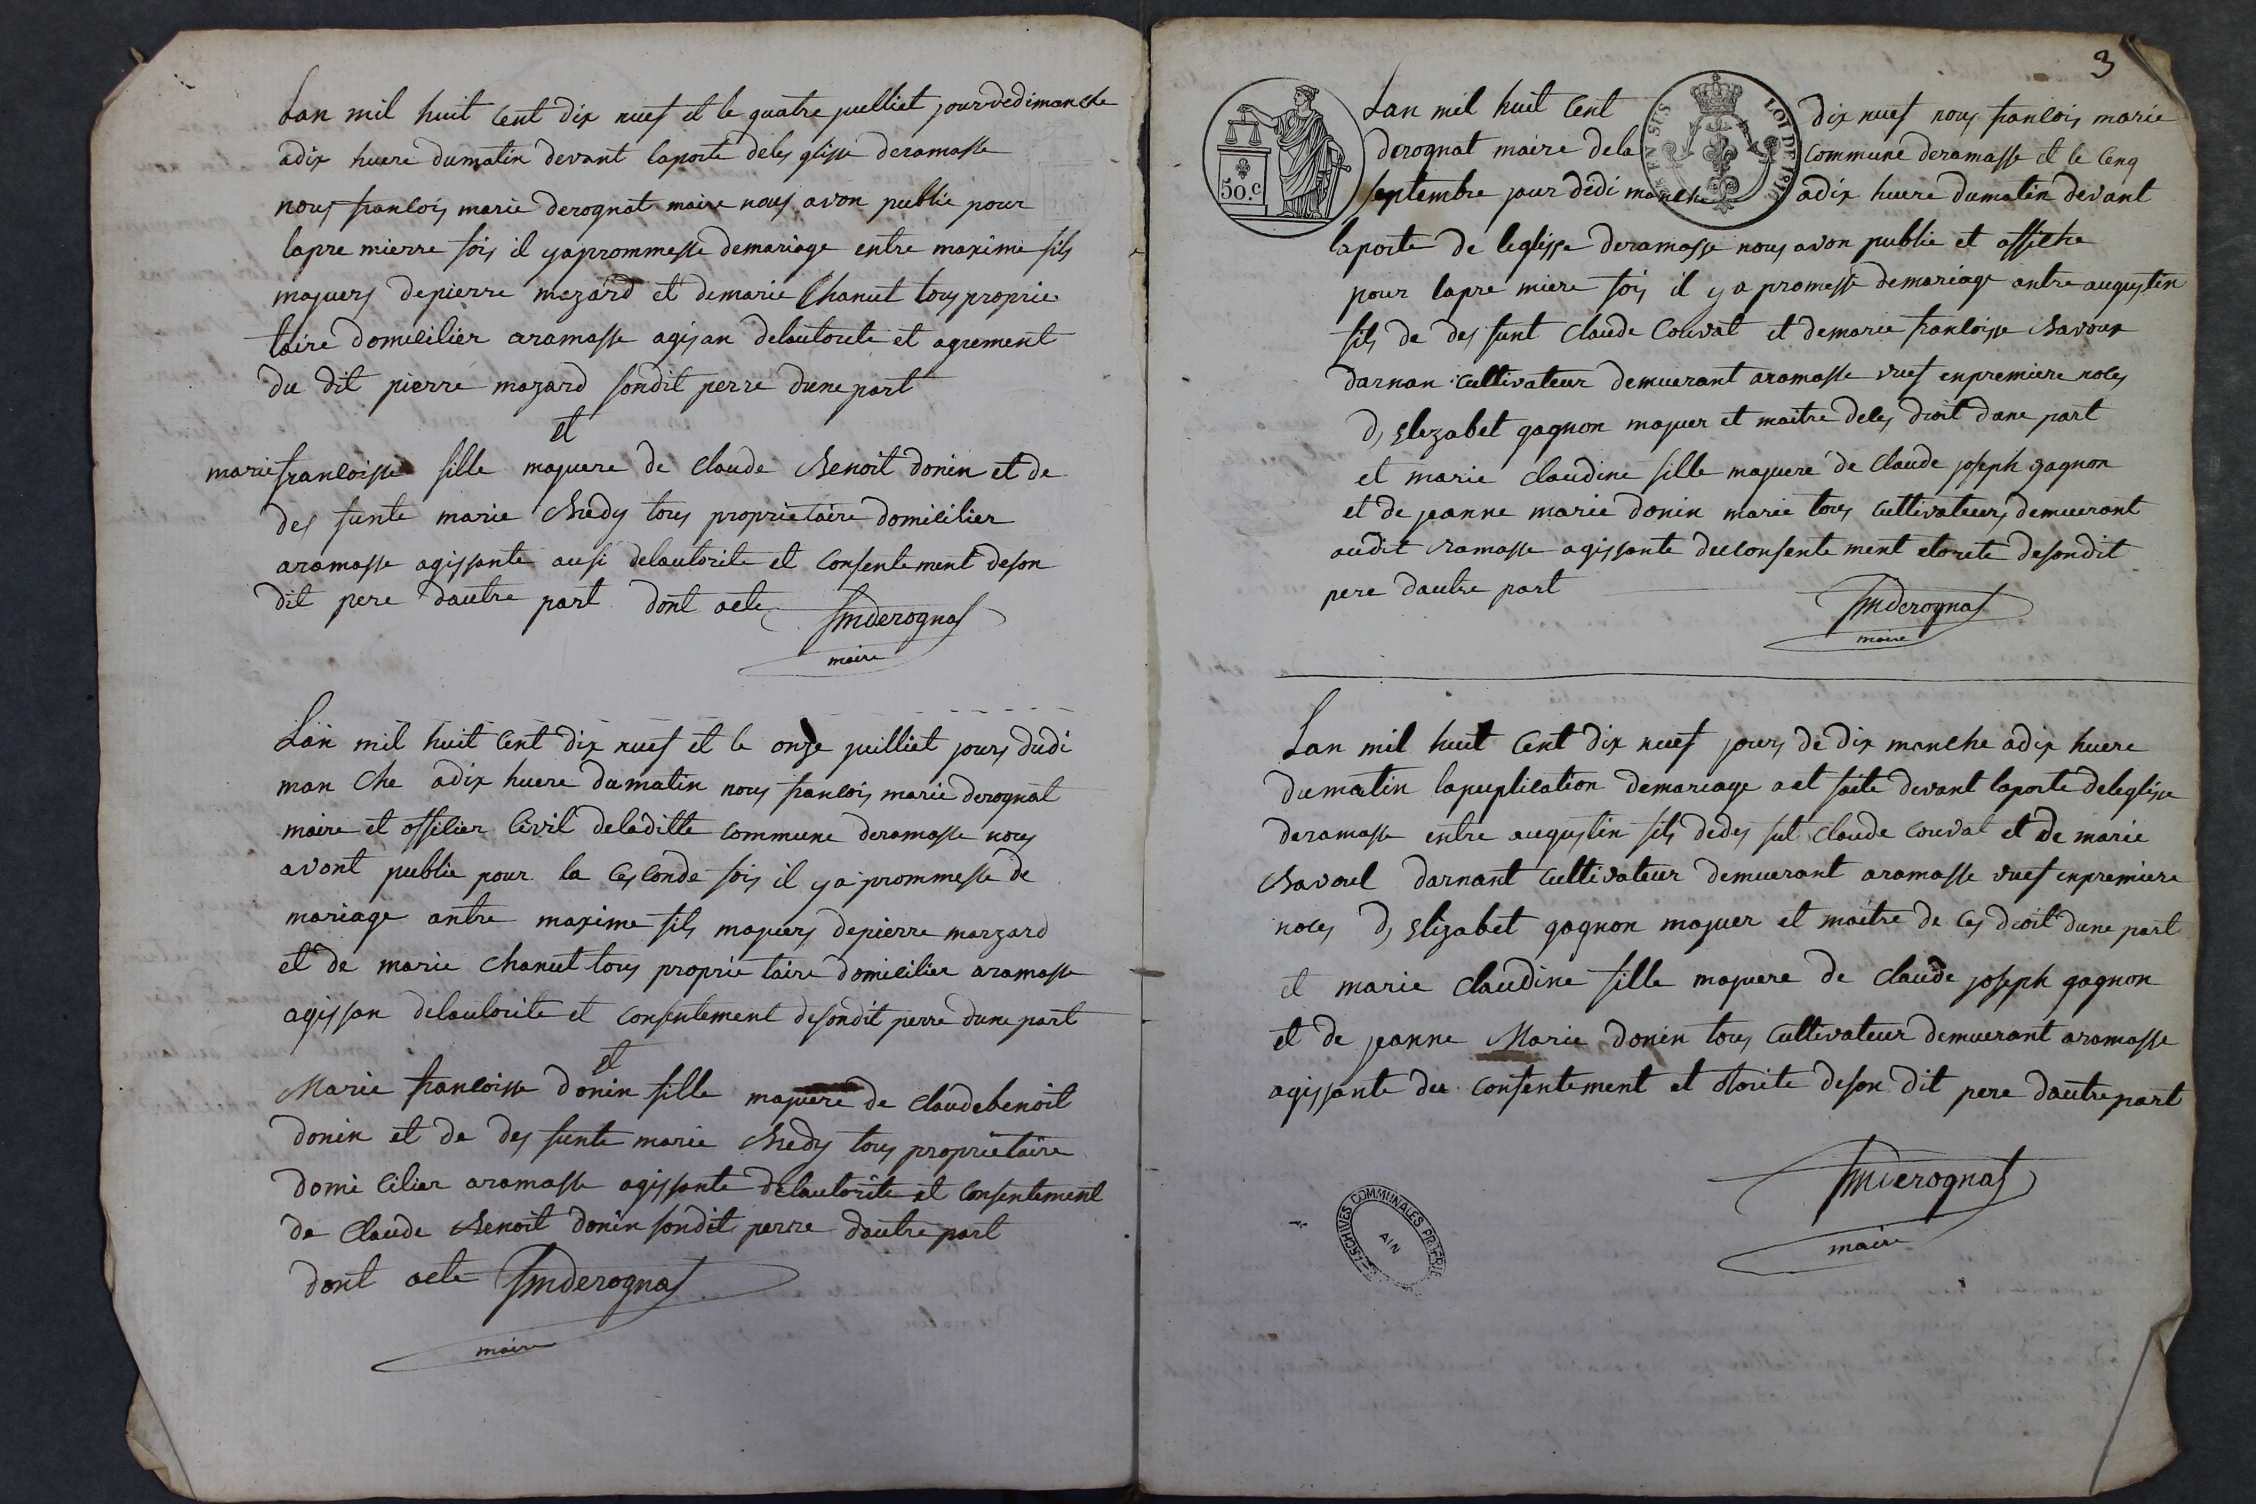 Lan mil huit Cent dix neuf et le quatre juilliet jour dedimanche
adix huere dumatin devant laporte deles glisse deramasse
nous francois marie derognat maire nous avon publie pour
lapre mierre fois il yaprommesse demariage entre maxime fils
majuers depierre mazard et demarie Chanut tous proprie
taire domicilier aramasse agisan delautorite et agrement
du dit pierre mazard sondit perre dune part
et
marie francoisse fille majuere de Claude Benoit donin et de
des funte marie Bredy tous proprietaire domicilier
aramasse agissante ausi delautorite et Consentement deson
dit pere dautre part dont acte fmderognat
maire
Lan mil huit Cent dix neuf et le onze juilliet jours dudi
man Che adix huere dumatin nous francois marie derognat
maire et officier Civil deladitte Commune deramasse nous
avont publie pour la Ces Conde fois il ya prommesse de
mariage antre maxime fils majuers depierre marzard
et de marie Chanut tous proprie taire domicilier aramasse
agissan delautorite et Consentement desondit perre dune part
et
Marie francoisse donin fille majuere de Claudebenoit
donin et de des funte marie Bredy tous proprietaire
domi Cilier aramasse agissante delautorite et Consentement
de Claude Benoit donin sondit perre dautre part
dont acte fmderognat
maire
3
50.c
LOI DE 1816
Lan mil huit Cent dix neuf nous francois marie
derognat maire dela Commune deramasse et le Cenq
septembre jour dedi manche adix huere dumatin devant
laporte de leglisse deramasse nous avon publie et affiche
pour lapre miere fois il y a promesse demariage antre augustin
fils de des funt Claude Couvat et demarie francoisse Bavoux
darnan Cultivateur demuerant aramasse vuef enpremiere noces
d, Elezabet gagnon majuer et maitre deles droit dune part
et marie Claudine fille majuere de Claude joseph gagnon
et de jeanne marie donin marie tous Cultivateurs demuerant
audit Ramasse agissante duconsente ment etorite desondit
pere dautre part
fmderognat
maire
Lan mil huit Cent dix neuf jours de dix manche adix huere
dumatin lapuplication demariage aet faite devant laporte deleglisse
deramasse entre augustin fils dedes fut Claude Couvat et de marie
Bavouel darnant Cultivateur demuerant aramasse vuef enpremiere
noces d, Elizabet gagnon majuer et maitre de Ces droit dune part
et marie Claudine fille majuere de Claude joseph gagnon
et de jeanne Marie donin tous Cultivateur demuerant aramasse
agissante du Consentement et otorite deson dit pere dautre part
fmderognat
maire
ARCHIVES COMMUNALES
AIN